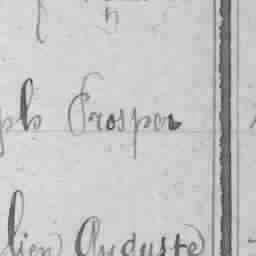 h
ph Prosper
lien Auguste